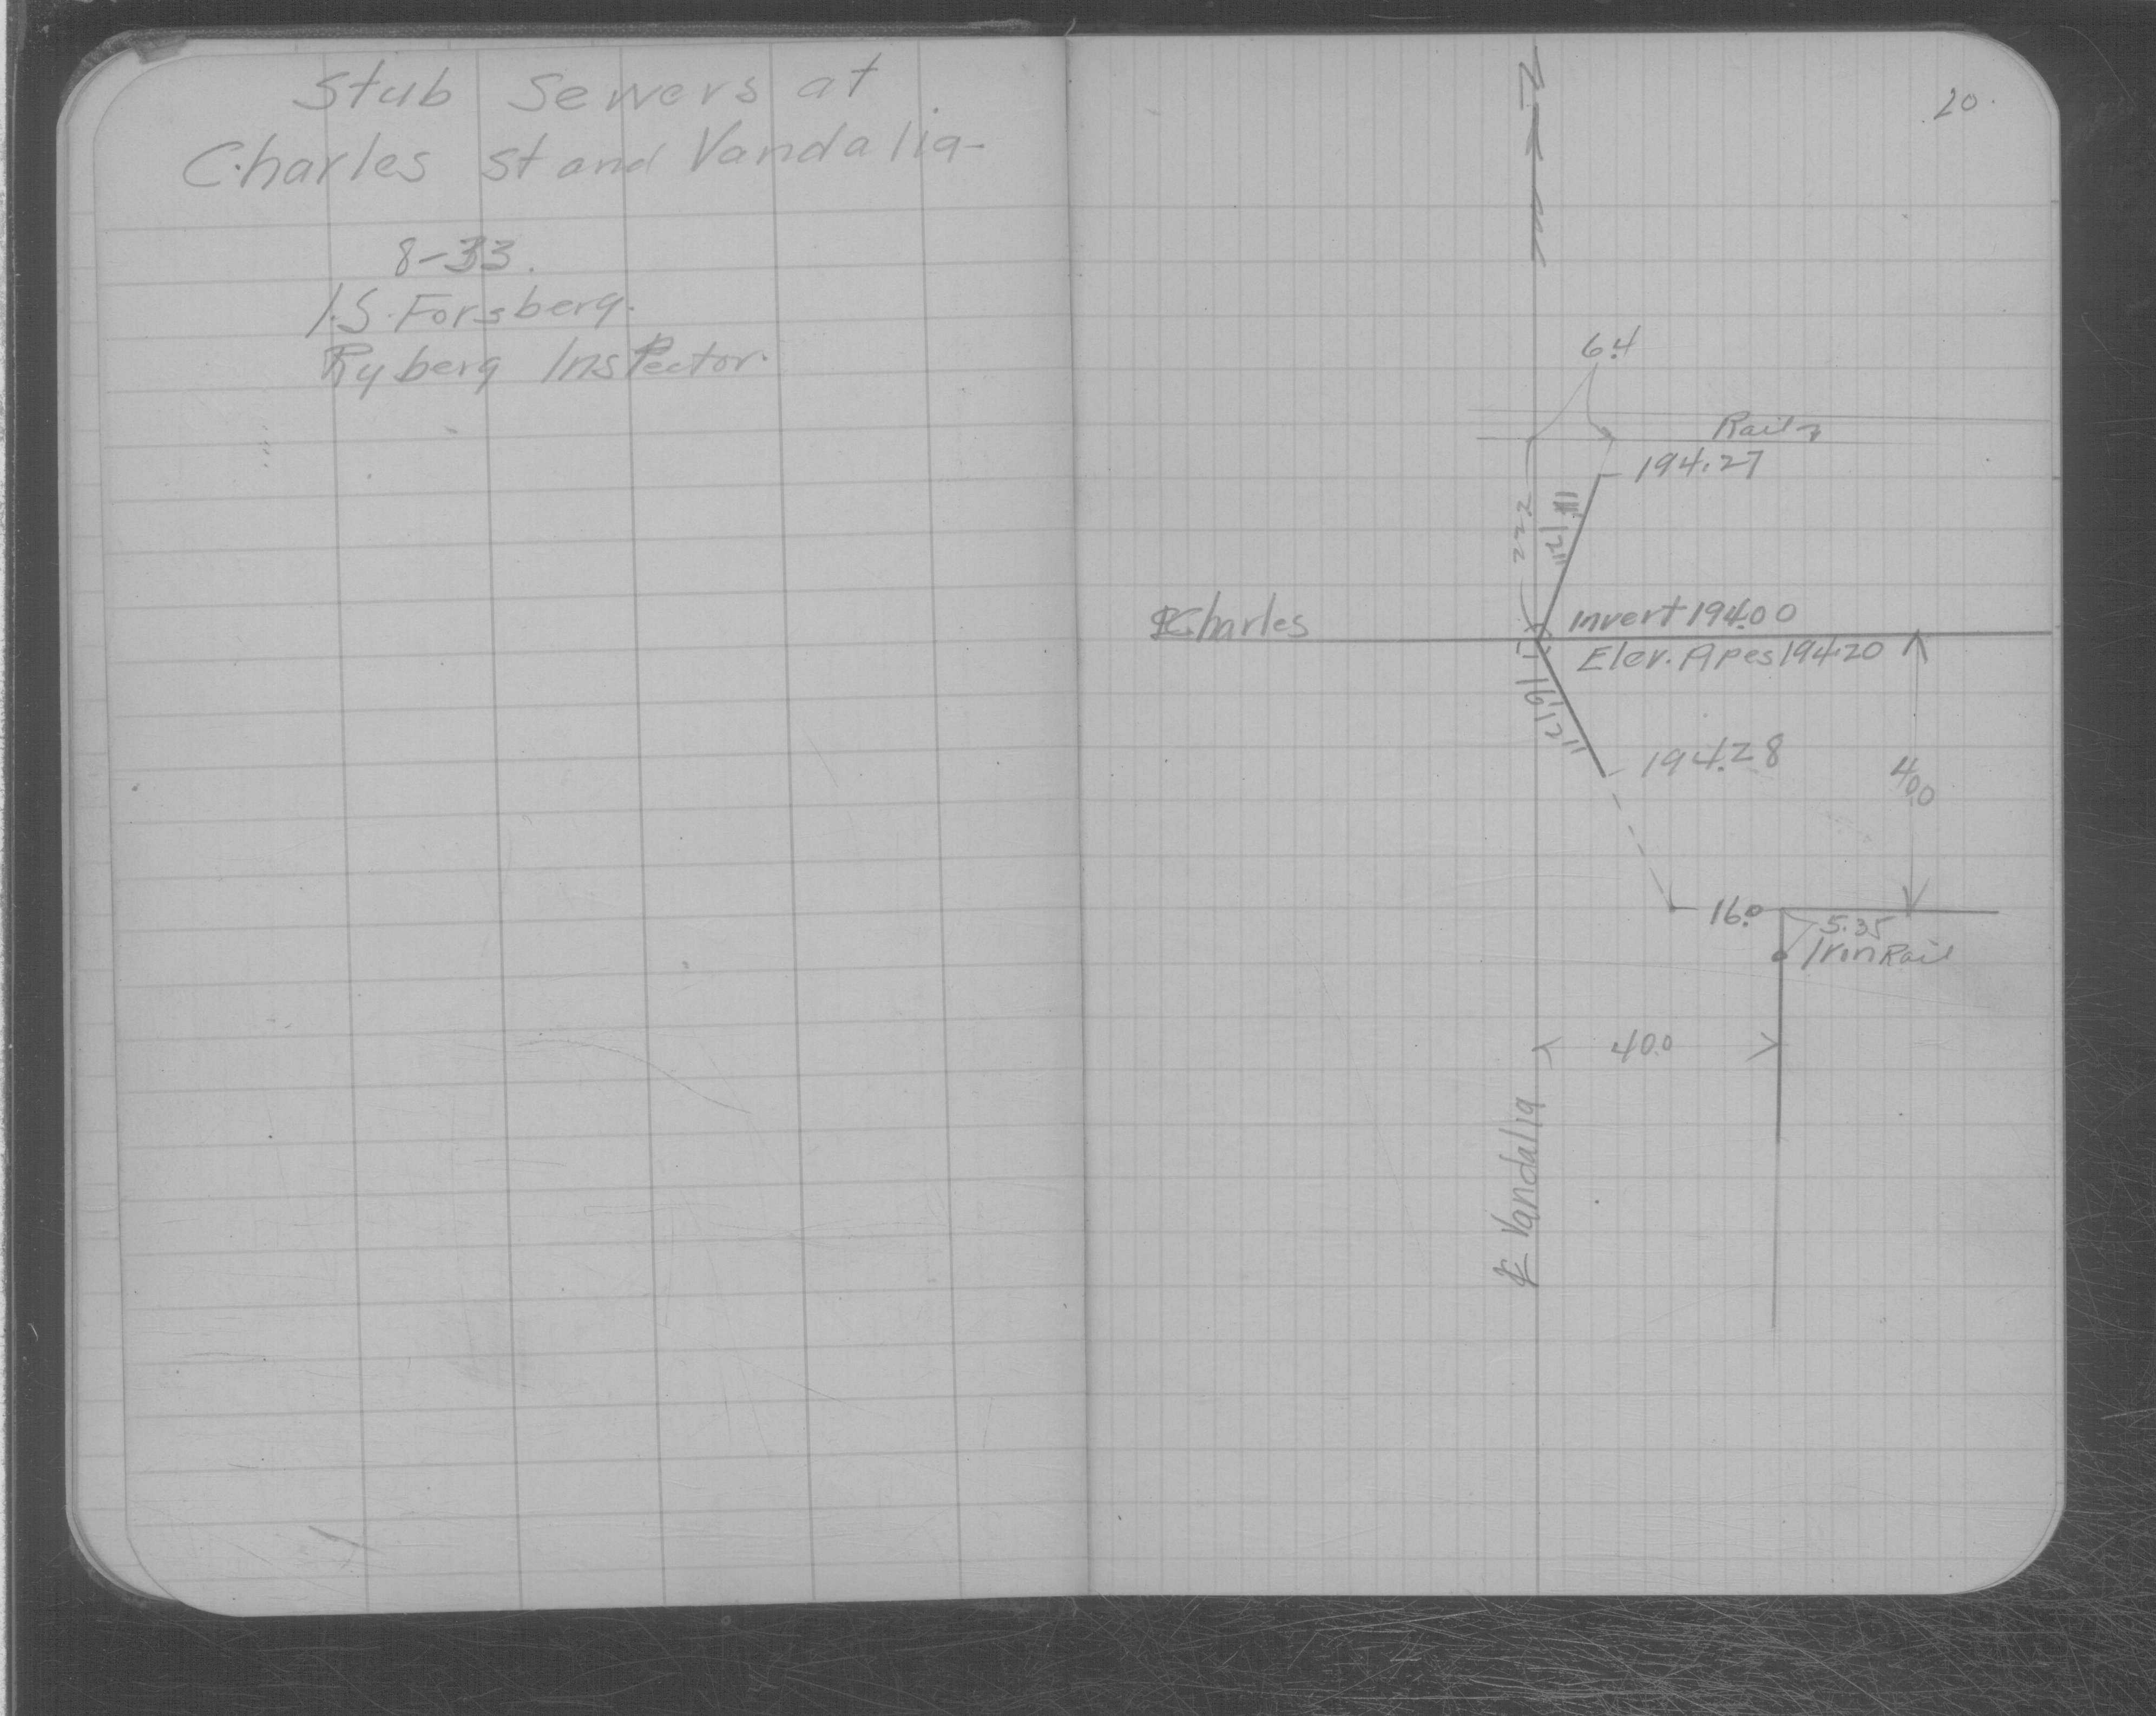 Stub Sewers at
Charles St and Vandalia-
8-33.
I.S. Forsberg.
Ryberg Inspector.
20.
6.4
Rail
194.27
222
12"
℄ Charles
Invert 194.00
Elev. Apes 194.20
12"
194.28
40.0
16.0
5.35
Iron Rail
40.0
℄ Vandalia